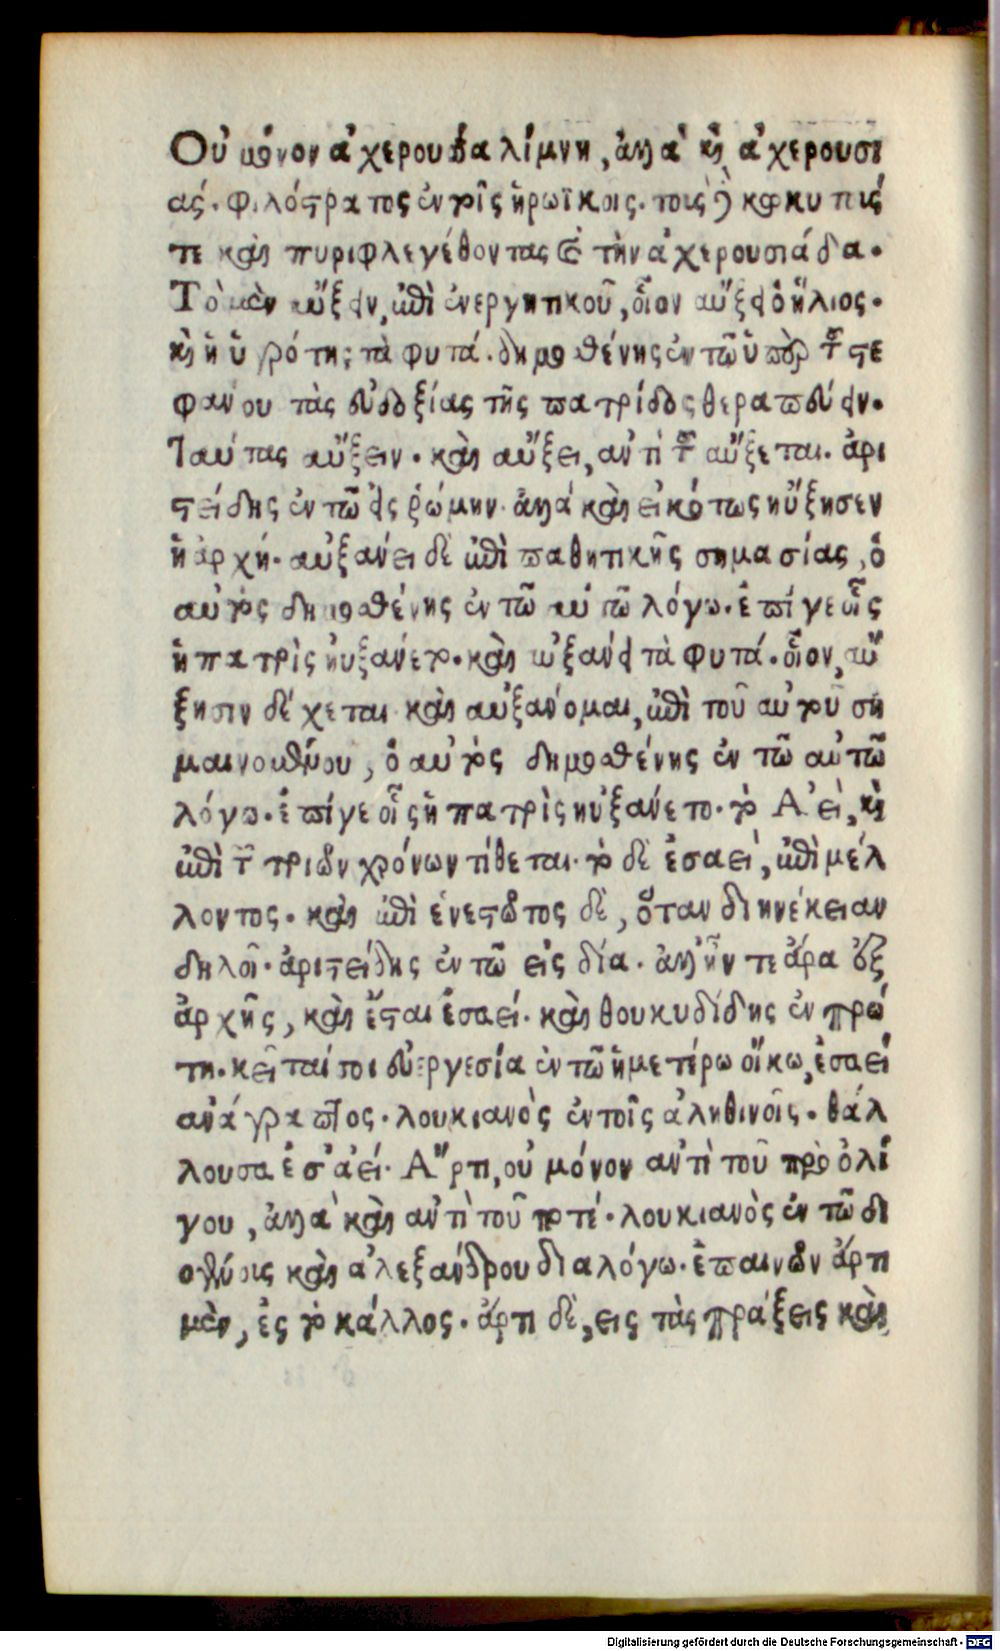 Οὐ μόνον ἀχερουσία λίμνη, ἀλλὰ καὶ ἀχερουσι
άς. φιλόστρατος ἐν τοῖς ἡρωϊκοις. τοις δὲ κωκυτούς
τε καὶ πυριφλεγέθοντας καὶ τὴν ἀχερουσιάδα.
Τὸ μὲν αὔξειν, ἐπὶ ἐνεργητικοῦ, οἷον αὔξει ὁ ἥλιος.
καὶ ἡ ὑγρότης τὰ φυτά. δημοσθένης ἐν τῶ ὑπὲρ τοῦ στε
φανου τὰς εὐδοξίας τῆς πατρίδος θεραπεύειν.
Ταύτας αὔξειν. καὶ αὔξει, αντὶ τοῦ αὔξεται. ἀρι
στείδης ἐν τῶ εἰς ῥώμην. ἀλλά καὶ εἰκότως ηὔξησεν
ἡ ἀρχή. αὐξάνει δὲ ἐπὶ παθητικῆς σημασίας, ὁ
αυτὸς δημοσθένης ἐν τῶ αυτῶ λόγω. ἐπίγε οἷς
ἡ πατρὶς ηυξανέτο. καὶ αὐξανει τὰ φυτά. οἷον, αὔ
ξησιν δέχεται καὶ αυξανομαι, ἐπὶ τοῦ αὐτοῦ ση
μαινουμένου, ὁ αυτὸς δημοσθένης ἐν τῶ αυτῶ
λόγω. ἐπίγε οἷς ἡ πατρὶς ηὐξάνετο. τὸ Ἀεὶ, καὶ
ἐπὶ τῶν τριῶν χρόνων τίθεται. τὸ δὲ ἐσαεί, ἐπὶ μέλ
λοντος. καὶ ἐπὶ ἐνεστῶτος δὲ, ὅταν διηνέκειαν
δηλοῖ. ἀριστείδης ἐν τῶ εἰς δία. ἀλλ' ἦν τε ἄρα ἐξ
ἀρχῆς, καὶ ἔσται ἐσαεί. καὶ θουκυδίδης ἐν πρώ
τη. κεῖταί σοι εὐεργεσία ἐν τῶ ἡμετέρω οἴκω, ἐσαεί
ανάγραπτος. λουκιανὸς ἐν τοῖς ἀληθινοῖς. θάλ
λουσα ἐσ ἀεί. Ἄρτι, οὐ μόνον αντὶ τοῦ πρὸ ὀλί
γου, ἀλλὰ καὶ αντὶ τοῦ ποτέ. λουκιανὸς ἐν τῶ δι
ογένους καὶ ἀλεξάνδρου διαλόγω. ἐπαινῶν ἄρτι
μὲν, ἐς τὸ κάλλος. ἄρτι δὲ, εις τὰς πράξεις καὶ
Digitalisierung gefördert durch die Deutsche Forschungsgemeinschaft - DFG